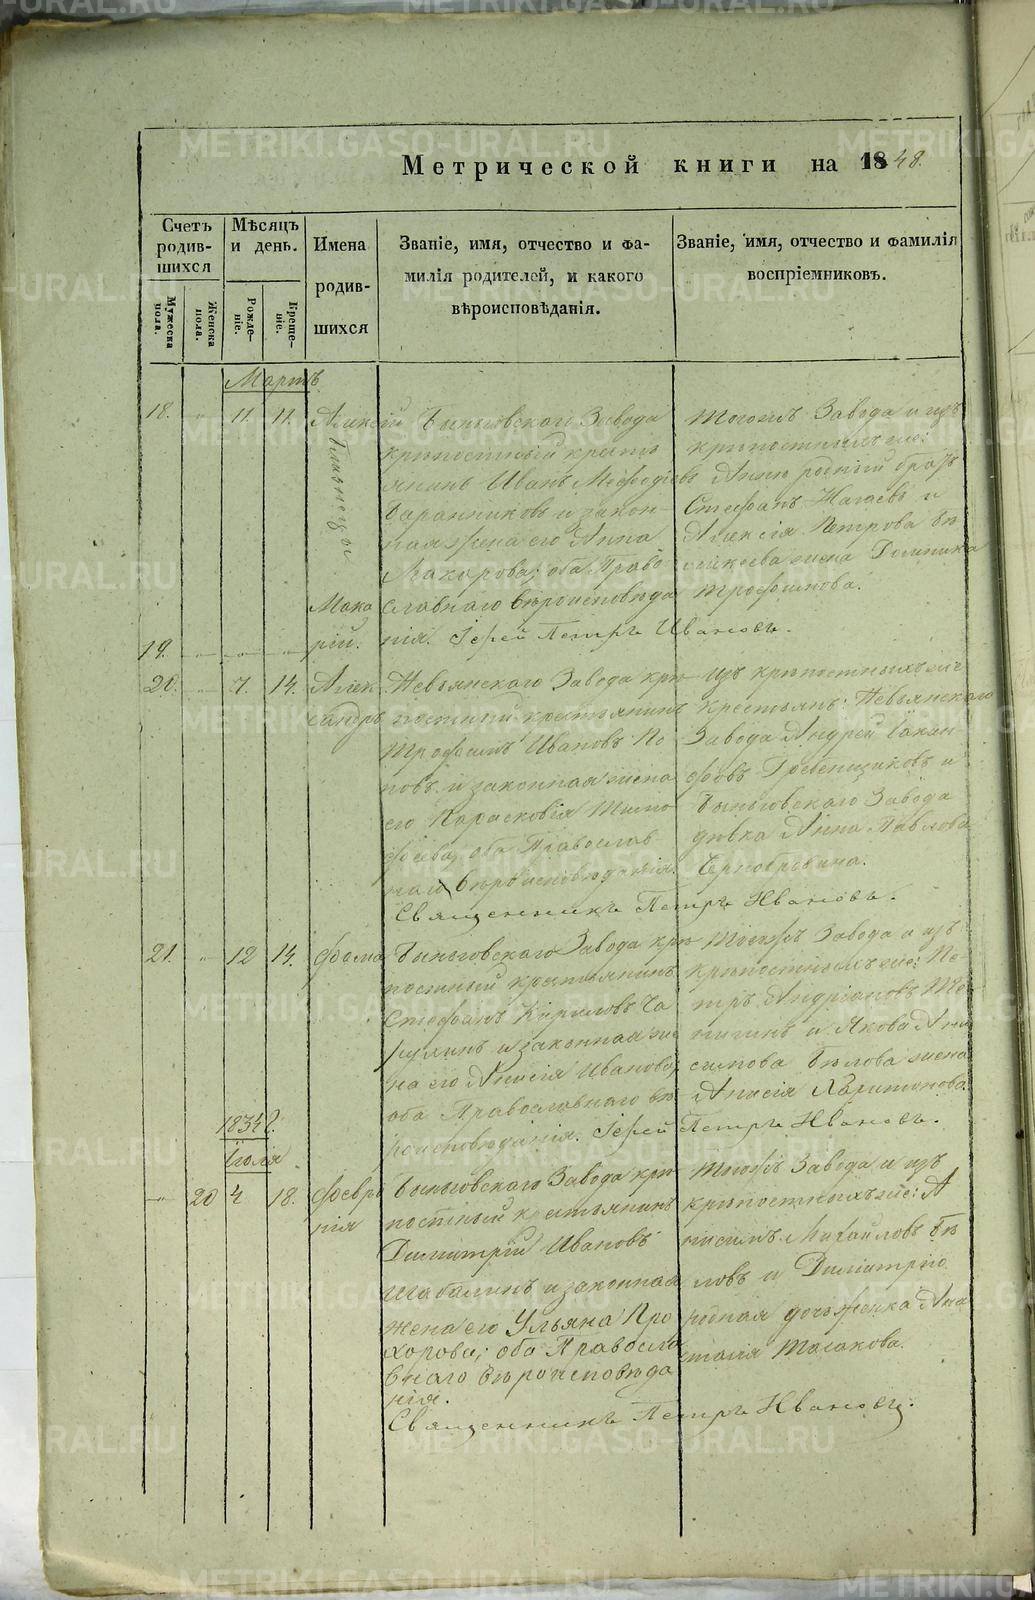 Метрической книги на 1848.
Счетъ родившихся
Мѣсяцъ и день.
Имена родившихся
Званіе, имя, отчество и фамилія родителей, и какого вѣроисповѣданія.
Званіе, имя, отчество и фамилія воспріемниковъ.
Мужеска пола.
Женска пола.
Рожденіе.
Крещеніе.
Мартъ
18. " 11. 11. Алексій
Близнецы
Мака
рій.
19. " " "
Быньговскаго Завода
крѣпостный кресть
янинъ Иванъ Меѳодіевъ
Баранниковъ и закон-
ная жена его Анна
Макарова; оба Право
славнаго вѣроисповѣда
нія. Іерей Петръ Ивановъ.
Тогожъ Завода и изъ
крѣпостныхъ же:
Анны родный братъ
Стефанъ Нагаевъ и
Алексія Петрова
жена
Трофимова.
20. " 7. 14. Алек
сандръ
Невьянскаго Завода крѣ
постный крестьянинъ
Трофимъ Ивановъ По
повъ и законная жена
его Парасковія Тимо
феева, оба Православ
наго вѣроисповѣданія.
Священникъ Петръ Ивановъ.
Изъ крѣпостныхъ же
крестьянъ: Невьянскаго
Завода Андрей
Гребенщиковъ и
Быньговскаго Завода
дѣвка Анна Павлова
Чернобровина.
21. " 12 14. Фома
Быньговскаго Завода крѣ
постный крестьянинъ
Стефанъ Кириловъ
и законная же
на его Анисія Иванова;
оба Православнаго вѣ
роисповѣданія. Іерей Петръ Ивановъ.
Тогожъ Завода и изъ
крѣпостныхъ же: Пе-
тръ Андріановъ
и Якова Ани
симова Бѣлова жена
Анисія Харитонова.
Іюля
" 20 4 18. Февро
нія
Быньговскаго Завода крѣ
постный крестьянинъ
Димитрій Ивановъ
Шабалинъ и законная
жена его Ульяна Про
хорова; оба Правосла
внаго вѣроисповѣда
нія.
Священникъ Петръ Ивановъ.
Тогожъ Завода и изъ
крѣпостныхъ же: А
нисимъ Михайловъ Бѣ
ловъ и Димитрію
родная дочь дѣвка Ана
стасія
METRIKI.GASO-URAL.RU